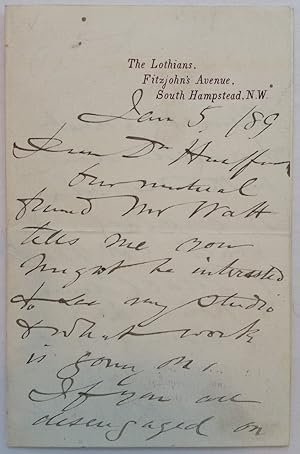 The Lothians,
Fitzjohn's Avenue,
South Hampstead, N.W.
Jan 5 /89
Dear Dr Hueffer
Our mutual
friend Mr Watt
tells me you
might be interested
to see my studio
& what work
is going on.
If you are
disengaged on